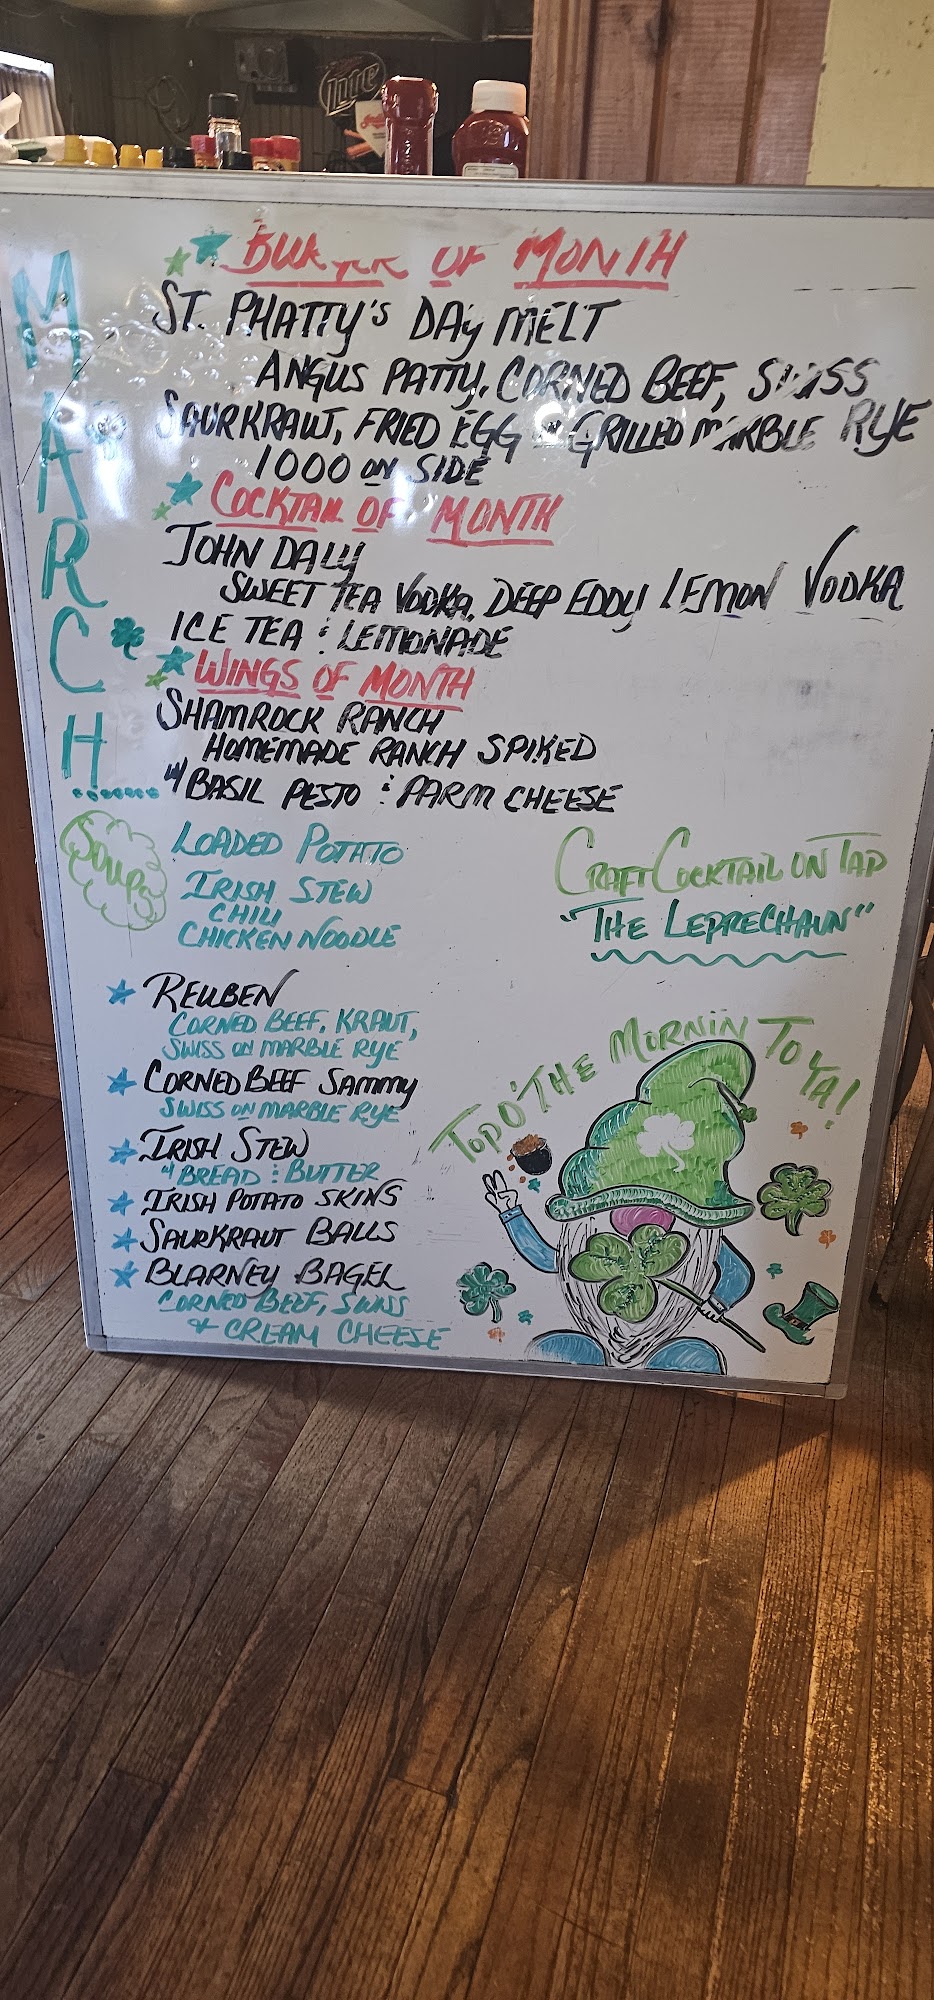 Lite
MARCH
BURGER OF MONTH
ST. PHATTY'S DAY MELT
ANGUS PATTY, CORNED BEEF, SWISS
SAURKRAUT, FRIED EGG ON GRILLED MARBLE RYE
1000 ON SIDE
COCKTAIL OF MONTH
JOHN DALY
SWEET TEA VODKA, DEEP EDDY LEMON VODKA
ICE TEA & LEMONADE
WINGS OF MONTH
SHAMROCK RANCH
HOMEMADE RANCH SPIKED
W/ BASIL PESTO & PARM CHEESE
SOUPS
LOADED POTATO
IRISH STEW
CHILI
CHICKEN NOODLE
CRAFT COCKTAIL ON TAP
"THE LEPRECHAUN"
REUBEN
CORNED BEEF, KRAUT,
SWISS ON MARBLE RYE
CORNED BEEF SAMMY
SWISS ON MARBLE RYE
IRISH STEW
W/ BREAD & BUTTER
IRISH POTATO SKINS
SAURKRAUT BALLS
BLARNEY BAGEL
CORNED BEEF, SWISS
+ CREAM CHEESE
TOP O' THE MORNIN TO YA!